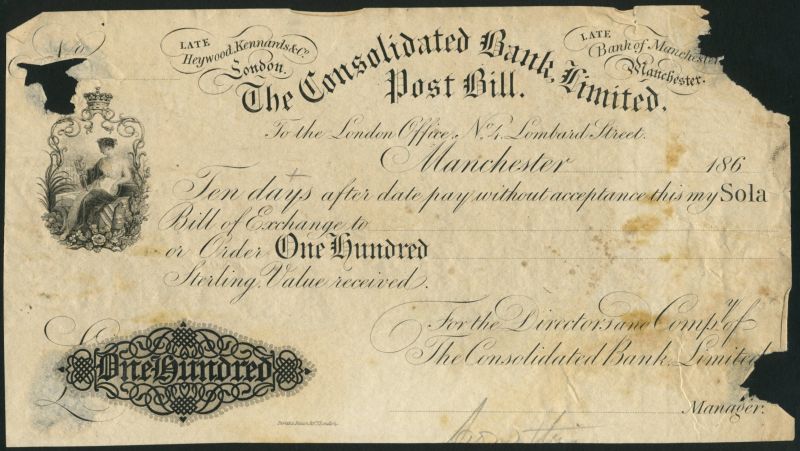 No
LATE
Heywood, Kennards & Co.
London.
The Consolidated Bank, Limited.
LATE
Bank of Manchester
Manchester.
Post Bill.
To the London Office, No. 4, Lombard Street.
Manchester 186
Ten days after date pay without acceptance this my Sola
Bill of Exchange to
or Order One Hundred
Sterling, Value received.
For the Directors and Compy. of
The Consolidated Bank, Limited
£ One Hundred
Manager.